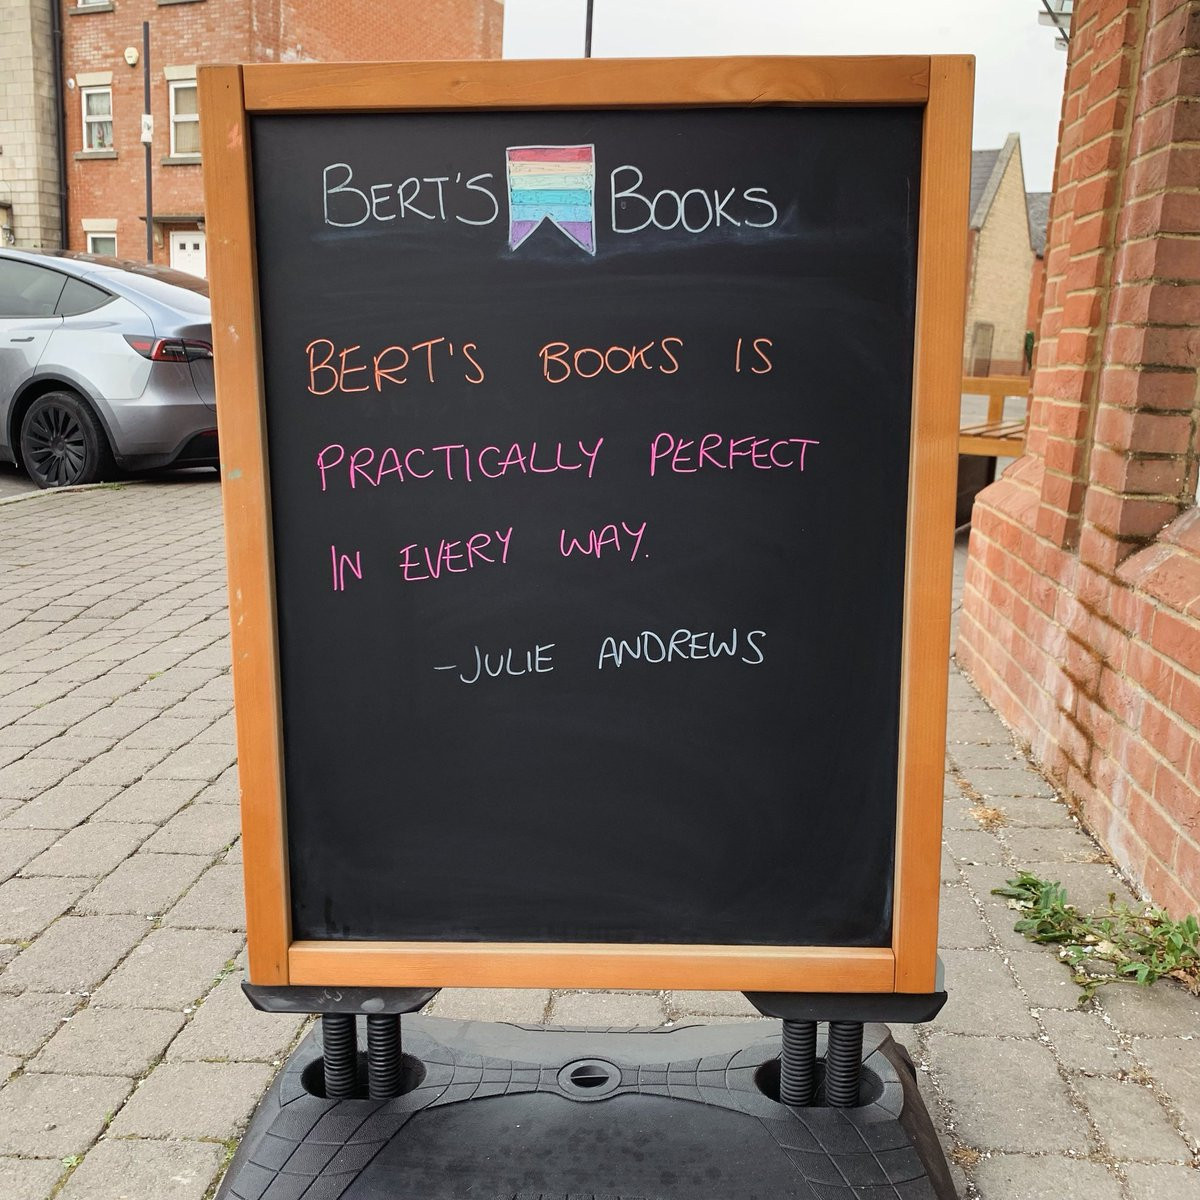 BERT'S BOOKS
BERT'S BOOKS IS
PRACTICALLY PERFECT
IN EVERY WAY.
-JULIE ANDREWS